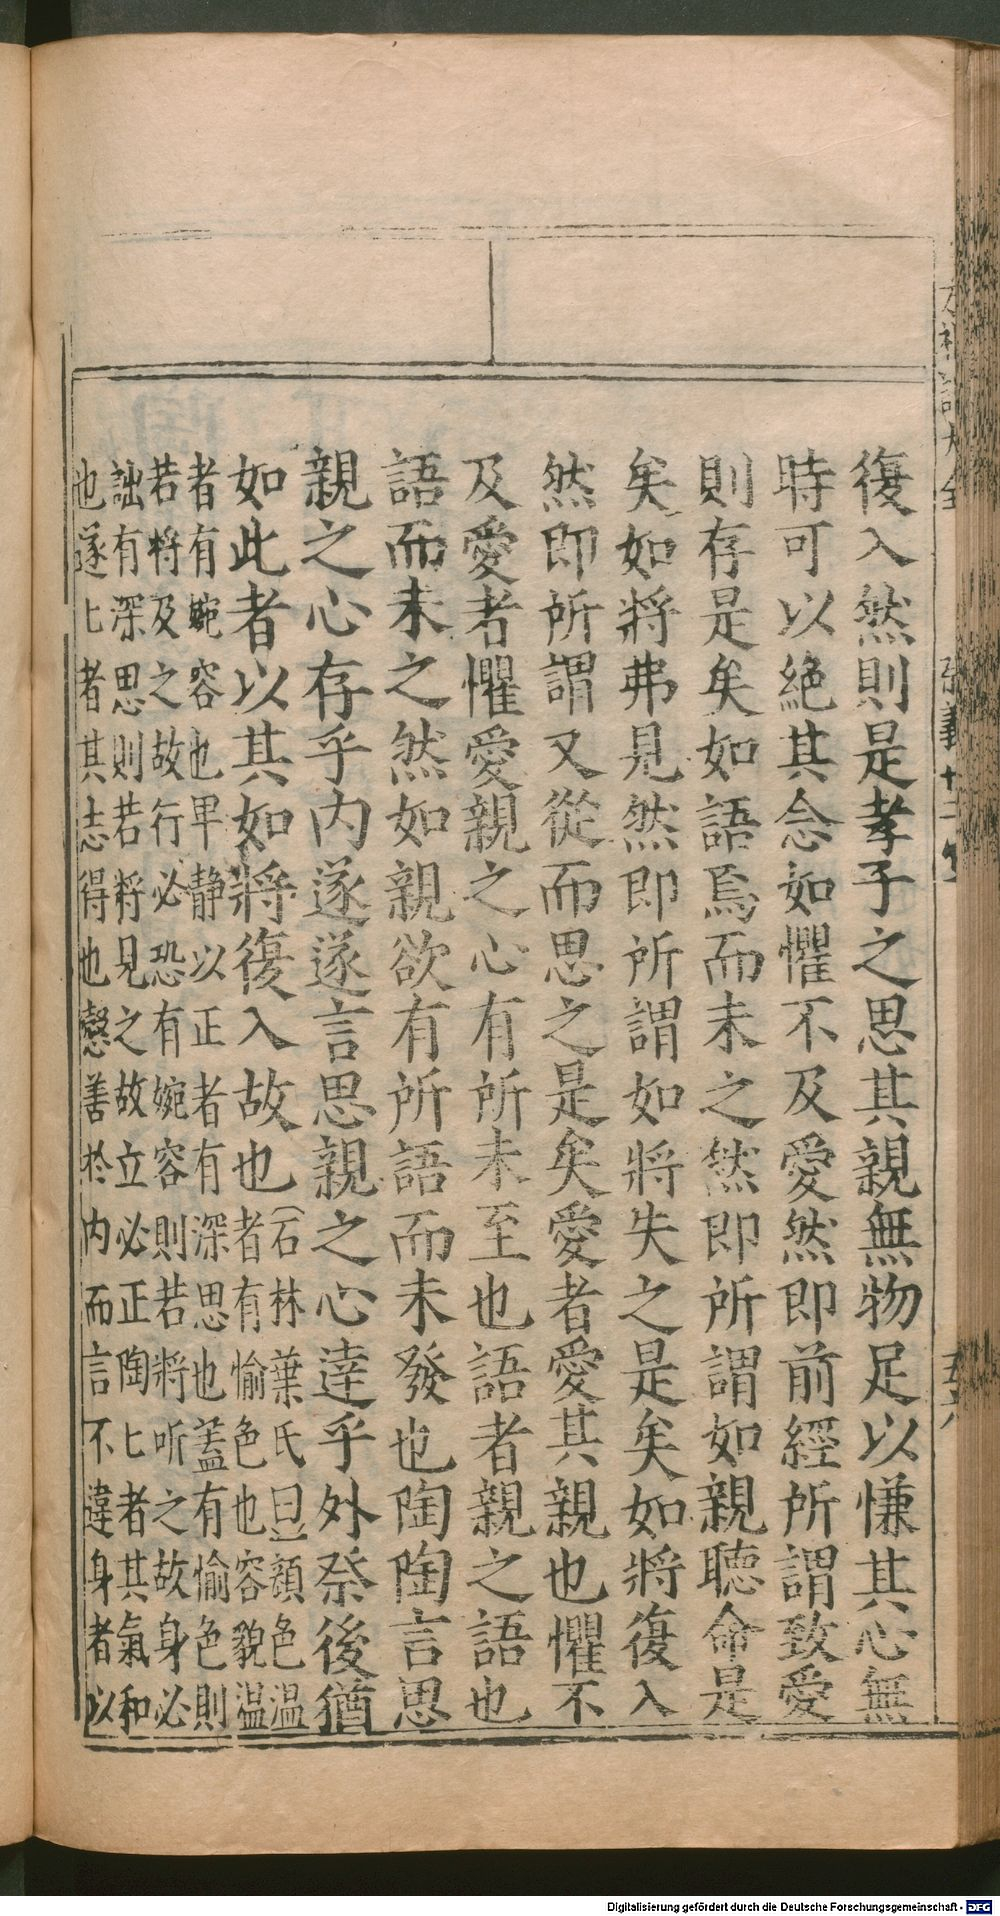 復入然則是孝子之思其親無物足以慊其心無
時可以絶其念如懼不及愛然即前經所謂致愛
則存是矣如語焉而未之然即所謂如親聴命是
矣如將弗見然即所謂如將失之是矣如將復入
然即所謂又從而思之是矣愛者愛其親也懼不
及愛者懼愛親之心有所未至也語者親之語也
語而未之然如親欲有所語而未發也陶陶言思
親之心存乎内遂遂言思親之心逹乎外祭後猶
如此者以其如將復入故也
石林葉氏曰顔色温
者有愉色也容貌温
者有婉容也卑静以正者有深思也蓋有愉色則
若將及之故行必恐有婉容則若將听之故身必
詘有深思則若將見之故立必正陶匕者其氣和
也遂匕者其志得也愨善於内而言不違身者以
Digitalisierung gefördert durch die Deutsche Forschungsgemeinschaft - DFG